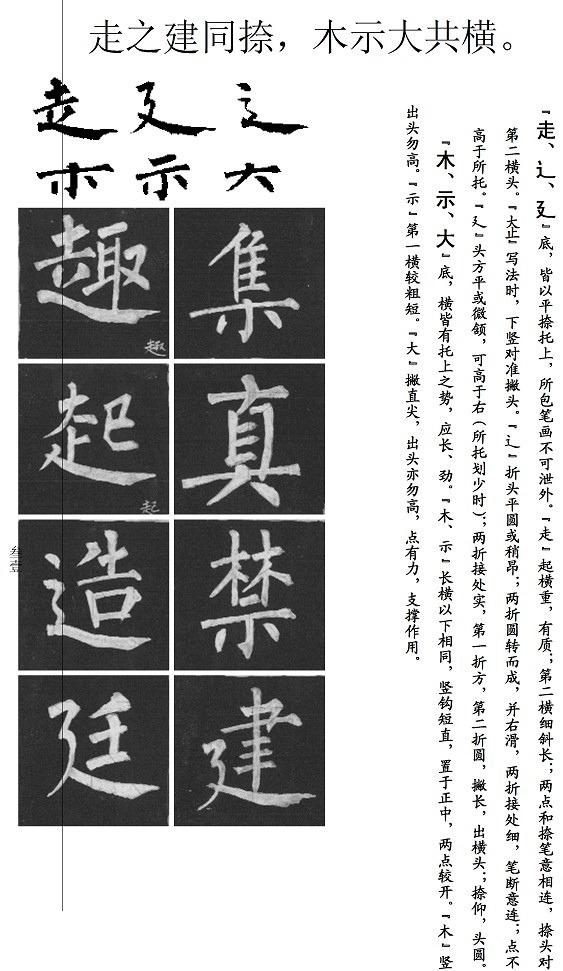 走之建同捺，木示大共横。
『走、辶、廴』底，皆以平捺托上，所包笔画不可泄外。『走』起横重，有质；第二横细斜长；两点和捺笔意相连，捺头对
第二横头。『大㱏』写法时，下竖对准撇头。『辶』折头平圆或稍昂；两折圆转而成，并右滑，两折接处细，笔断意连；点不
高于所托。『廴』头方平或微颔，可高于右（所托划少时）；两折接处实，第一折方，第二折圆，撇长，出横头；捺仰，头圆。
『木、示、大』底，横皆有托上之势，应长、劲。『木、示』长横以下相同，竖钩短直，置于正中，两点较开。『木』竖
出头勿高。『示』第一横较粗短。『大』撇直尖，出头亦勿高，点有力，支撑作用。
走 廴 辶
木 示 大
趣 集
趣
起 真
起
造 禁
廷 建
叁壹